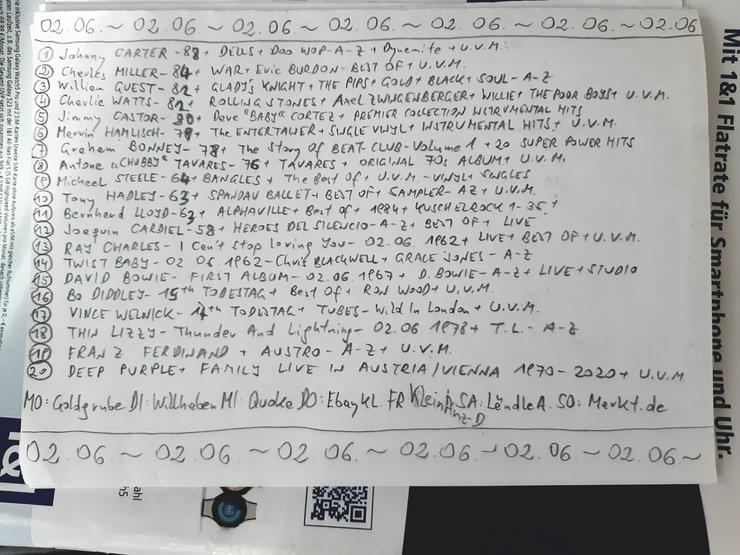 02.06.~02.06.~02.06.~02.06.~02.06.~02.06
① Johnny CARTER-88+ DELLS+ Doo WOP-A-Z+ Dynemite+ U.V.M.
② Cherles MILLER-84+ WAR+ Eric BURDON-BEST OF+ U.V.M.
③ Williem GUEST-82+ GLADYS KNIGHT+ THE PIPS+ GOLD+ BLACK+ SOUL-A-Z
④ Cherlie WATTS-82+ ROLLING STONES+ Axel ZWINGENBERGER+ WILLIE+ THE POOR BOYS+ U.V.M.
⑤ Jimmy CASTOR-80+ Dave "BABY" CORTEZ+ PREMIER COLLECTION INSTRUMENTAL HITS
⑥ Mervin HAMLISCH-79+ The ENTERTAINER+ SINGLE VINYL+ INSTRUMENTAL HITS+ U.V.M.
⑦ Grehem BONNEY-78+ The Story OF BEAT-CLUB-Volume 1+ 20 SUPER POWER HITS
⑧ Antone "CHUBBY" TAVARES-76+ TAVARES+ ORIGINAL 70s ALBUM+ U.V.M.
⑨ Micheel STEELE-64+ BANGLES+ The Best Of+ U.V.M-VINYL+ SINGLES
⑩ Tony HADLEY-63+ SPANDAU BALLET+ BEST OF+ SAMPLER-AZ+ U.V.M.
⑪ Bernherd LLOYD-63+ ALPHAVILLE+ Best of+ 1984+ KUSCHELROCK 1-35+
⑫ Joequin CARDIEL-58+ HEROES DEL SILENCIO-A-Z+ BEST OF+ LIVE
⑬ RAY CHARLES-I Can't Stop Loving You-02.06.1962+ LIVE+ BEST OF+U.V.M.
⑭ TWIST BABY-02.06.1962-Chris BLACKWELL+ GRACE JONES-A-Z
⑮ DAVID BOWIE-FIRST ALBUM-02.06.1967+ D.BOWIE-A-Z+ LIVE+STUDIO
⑯ Bo DIDDLEY-15th TODESTAG+ Best Of+ RON WOOD+ U.V.M.
⑰ VINCE WELNICK- TODESTAG+ TUBES-Wild In London+ U.V.M.
⑱ THIN LIZZY-Thunder And Lightning-02.06.1978+ T.L.-A-Z
⑲ FRANZ FERDINAND+ AUSTRO-A-Z+ U.V.M.
⑳ DEEP PURPLE+ FAMILY LIVE IN AUSTRIA/VIENNA 1970-2020+ U.V.M.
MO:Goldgrube DI:Willheben MI:Quoke DO:EbayKL. FR Klein Anz-D SA:LändleA. SO:Merkt.de
02.06.~02.06.~02.06.~02.06.~02.06~02.06~
Mit 1&1 Flatrate für Smartphone und Uhr.